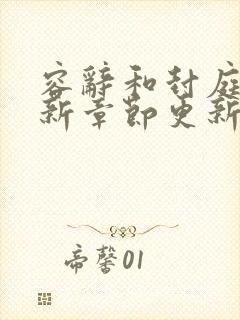 容辞和封庭
新章节更新
帝馨01